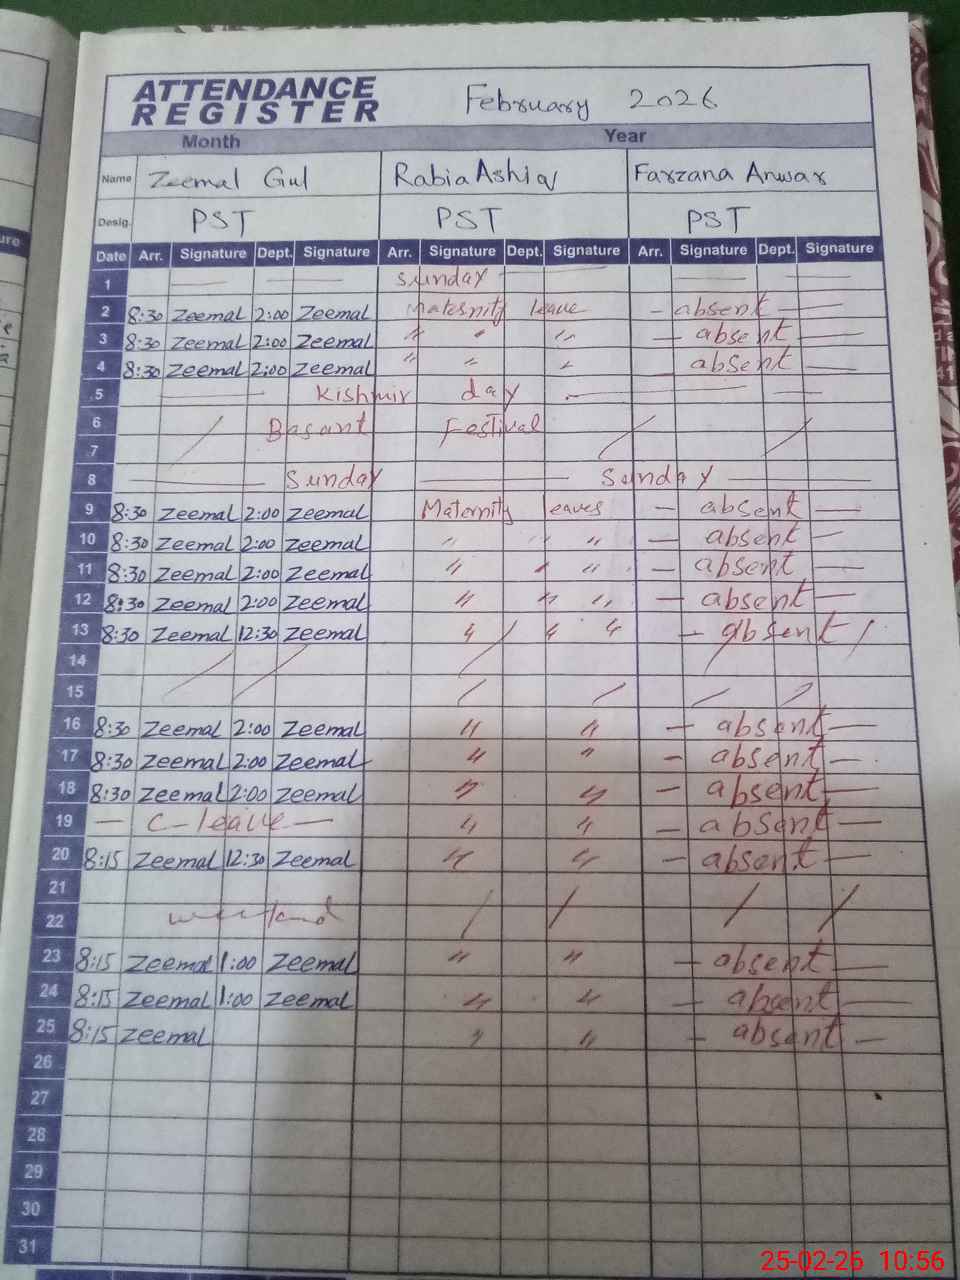 ATTENDANCE REGISTER February 2026
Month Year
Name Zeemal Gul Rabia Ashiq Farzana Anwar
Desig. PST PST PST
Date Arr. Signature Dept. Signature Arr. Signature Dept. Signature Arr. Signature Dept. Signature
1 Sunday
2 8:30 Zeemal 2:00 Zeemal Maternity leave — absent —
3 8:30 Zeemal 2:00 Zeemal " " " — absent —
4 8:30 Zeemal 2:00 Zeemal " " " — absent —
5 Kishmir day
6 Basant Festival
7
8 Sunday Sunday
9 8:30 Zeemal 2:00 Zeemal Maternity leaves — absent —
10 8:30 Zeemal 2:00 Zeemal " " " — absent —
11 8:30 Zeemal 2:00 Zeemal " " " — absent —
12 8:30 Zeemal 2:00 Zeemal " " " — absent —
13 8:30 Zeemal 12:30 Zeemal " " " — absent
14
15
16 8:30 Zeemal 2:00 Zeemal " " — absent —
17 8:30 Zeemal 2:00 Zeemal " " — absent —
18 8:30 Zeemal 2:00 Zeemal " " — absent —
19 — C-leave — " " — absent —
20 8:15 Zeemal 12:30 Zeemal " " — absent —
21
22
23 8:15 Zeemal 1:00 Zeemal " " — absent —
24 8:15 Zeemal 1:00 Zeemal " " — absent —
25 8:15 Zeemal " " — absent —
26
27
28
29
30
31
25-02-26 10:56